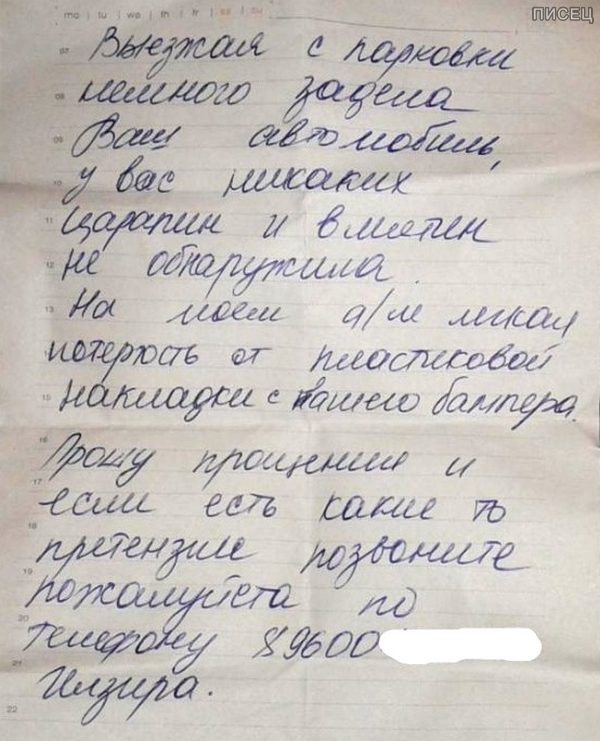 ПИСЕЦ
mo | tu | we | th | fr | sa | su
Выезжая с парковки
немного задела
Ваш автомобиль,
у вас никаких
царапин и вмятин
не обнаружила.
На моем а/м легкая
потертость от пластиковой
накладки с Вашего бампера.
Прошу прощения и
если есть какие то
претензии позвоните
пожалуйста по
телефону 89600
Илзира.
07
08
09
10
11
12
13
15
16
17
18
19
20
21
22